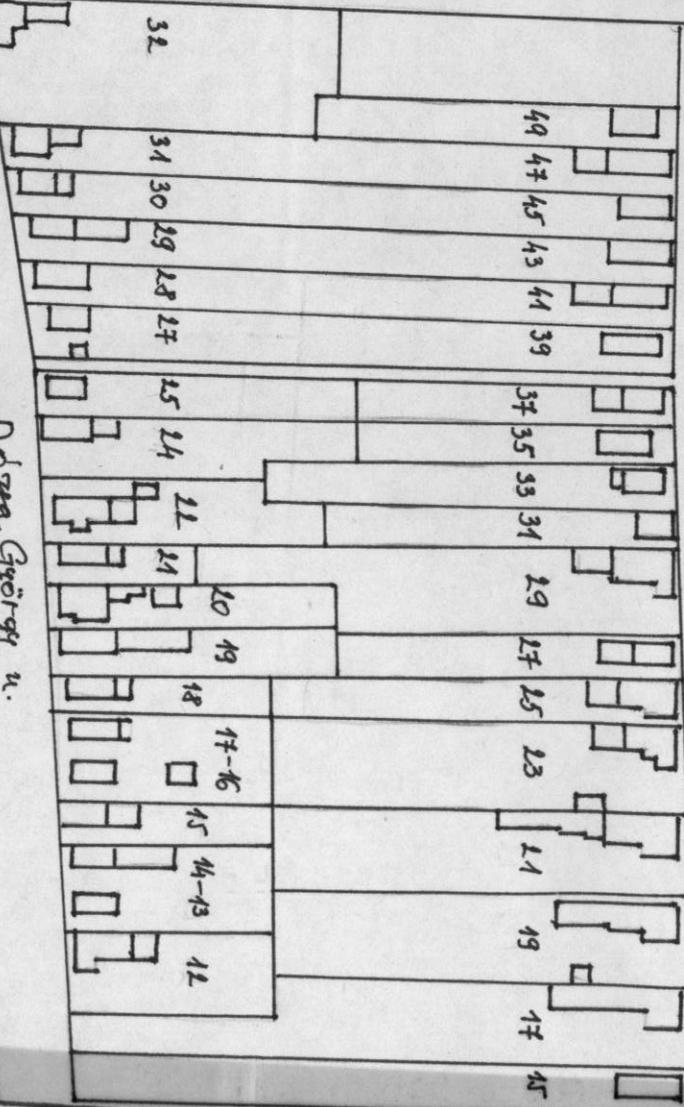 32
31
30
29
28
27
25
24
22
21
20
19
18
17-16
15
14-13
12
49
47
45
43
41
39
37
35
33
31
29
27
25
23
21
19
17
15
Dózsa György u.